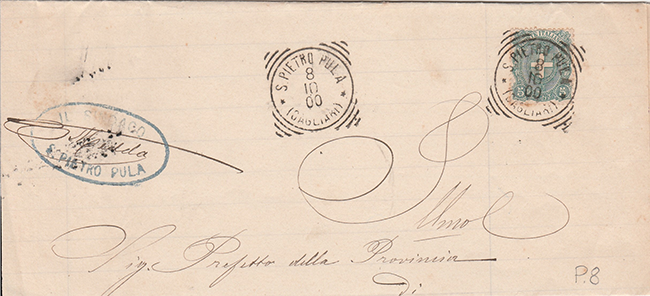 S. PIETRO PULA
8
10
00
(CAGLIARI)
S. PIETRO PULA
8
10
00
(CAGLIARI)
IL SINDACO
S. PIETRO PULA
Illmo
Sig. Prefetto della Provincia
di
P.8